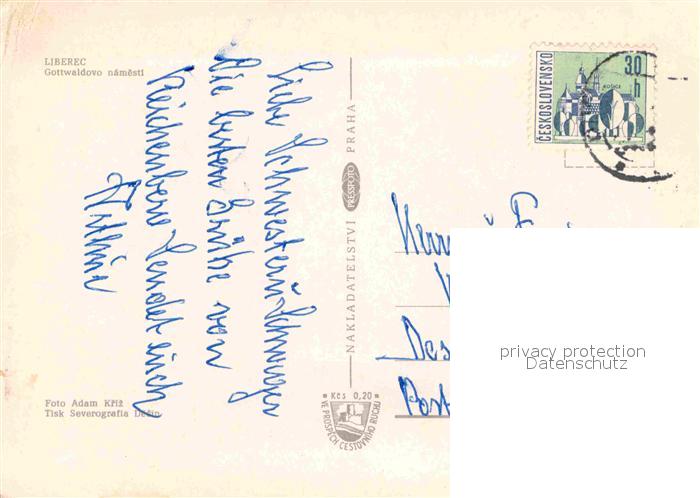 LIBEREC
Gottwaldovo náměstí
Liebe Schwester u. Schwager
die besten Grüße von
Reichenberg sendet euch
Foto Adam Kříž
Tisk Severografia Děčín
NAKLADATELSTVÍ PRESSFOTO PRAHA
Kčs 0,20
VE PROSPĚCH CESTOVNÍHO RUCHU
ČESKOSLOVENSKO
30 h
KOŠICE
Des
Post
privacy protection
Datenschutz